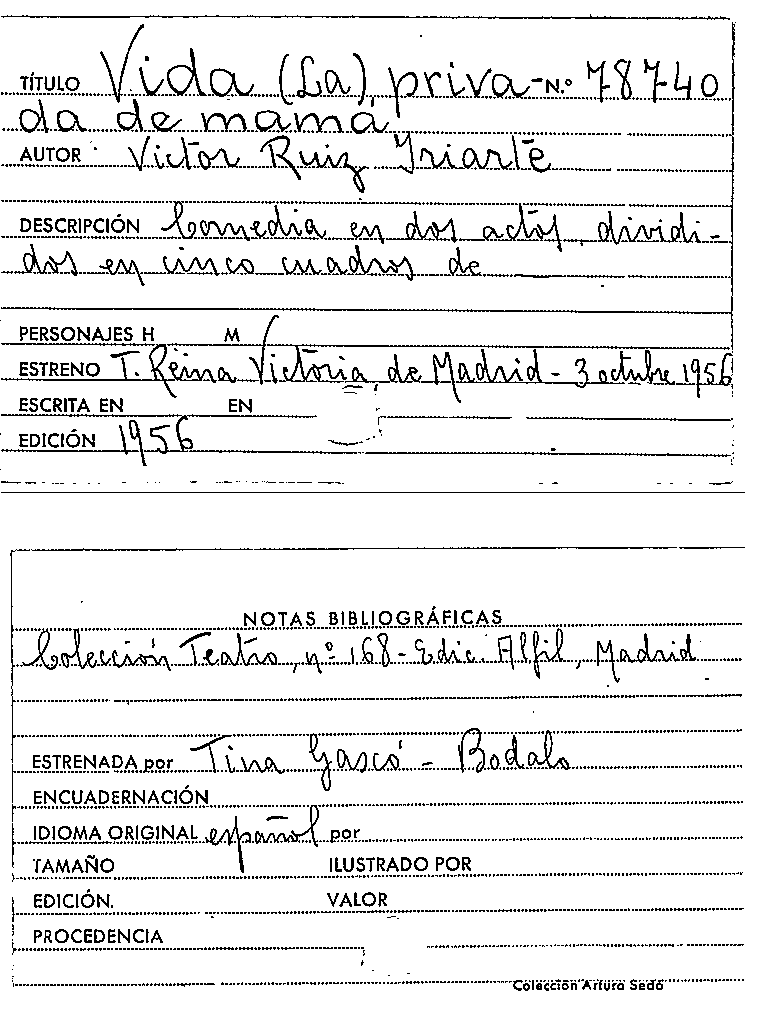 TÍTULO Vida (La) priva- N.º 78740
da de mamá
AUTOR Victor Ruiz Iriarte
DESCRIPCIÓN Comedia en dos actos, dividi-
dos en cinco cuadros de
PERSONAJES H M
ESTRENO T. Reina Victoria, de Madrid - 3 octubre 1956
ESCRITA EN EN
EDICIÓN 1956
NOTAS BIBLIOGRÁFICAS
Colección Teatro, nº 168 - Edic. Alfil, Madrid
ESTRENADA por Tina Gascó - Bodalo
ENCUADERNACIÓN
IDIOMA ORIGINAL español por
TAMAÑO ILUSTRADO POR
EDICIÓN. VALOR
PROCEDENCIA
Colección Arturo Sedó